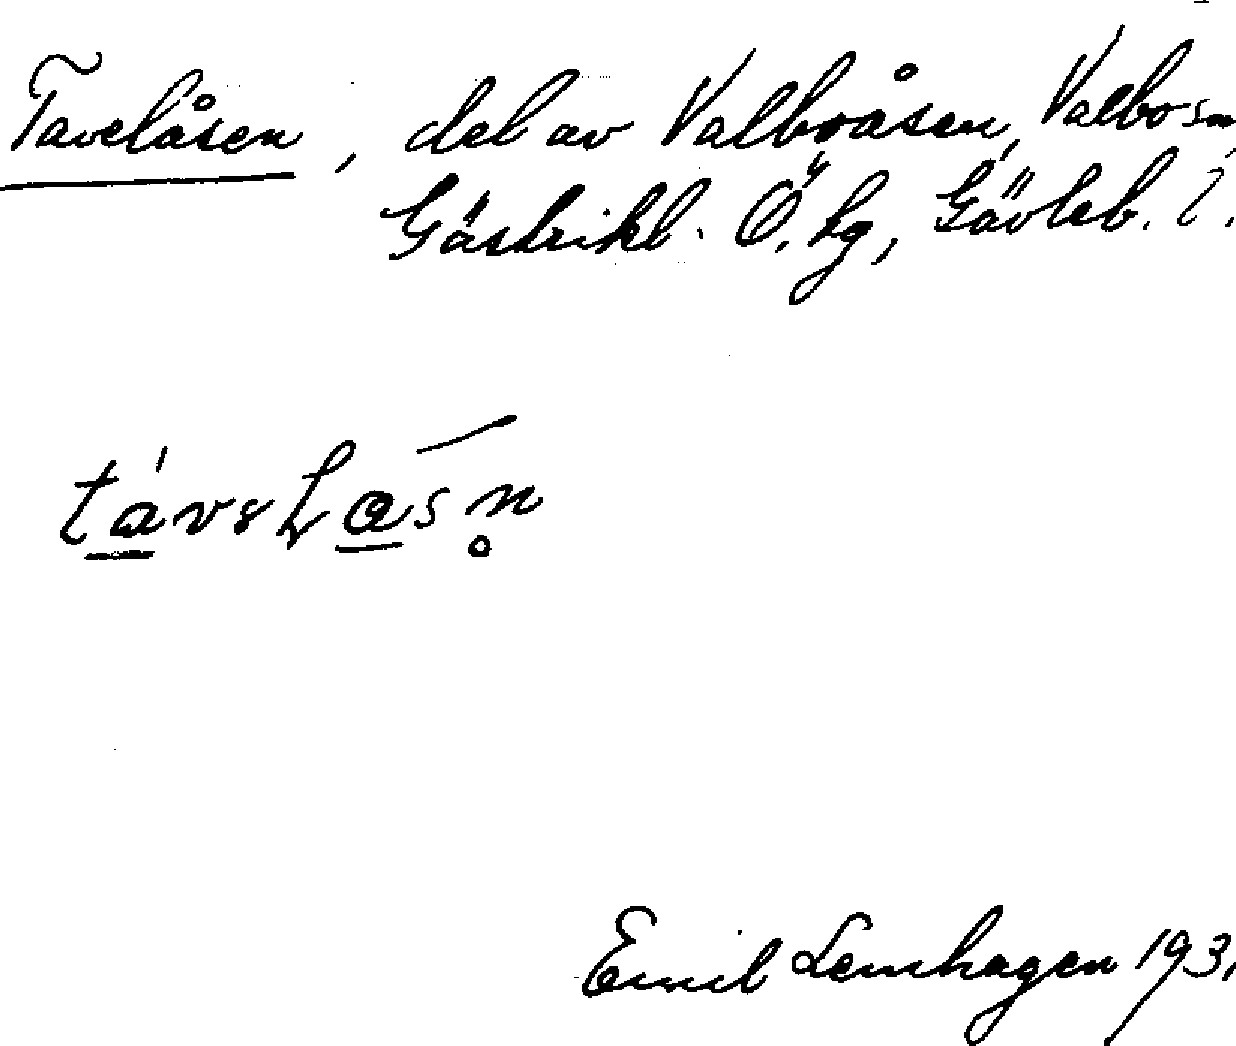 Tavelåsen, del av Valboåsen, Valbo sn,
Gästrikl. Ö. tg, Gävleb. l.
Emil Lenhagen 193